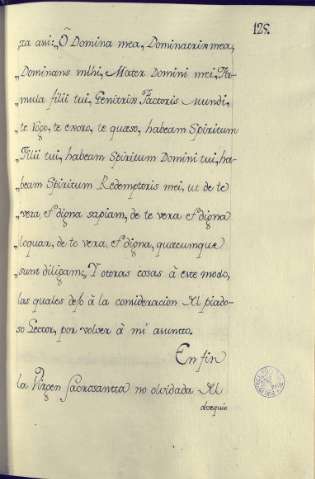 125
ta assi: O Domina mea, Dominatrix mea,
Dominans mihi, Mater Domini mei, Fa-
mula filii tui, Genitrix Factoris Mundi,
te rogo, te exoro, te quæso, habeam Spiritum
Filii tui, habeam Spiritum Domini tui, ha-
beam Spiritum Redemptoris mei, ut de te
vera, et digna sapiam, de te vera et digna
loquar, de te vera, et digna, quæcumque
sunt diligam; Y otras cosas à este modo,
las quales dejo à la consideracion del piado-
so Lector, por volver à mi asunto.
En fin
la Virgen Sacrosanta no olvidada del
obsequio